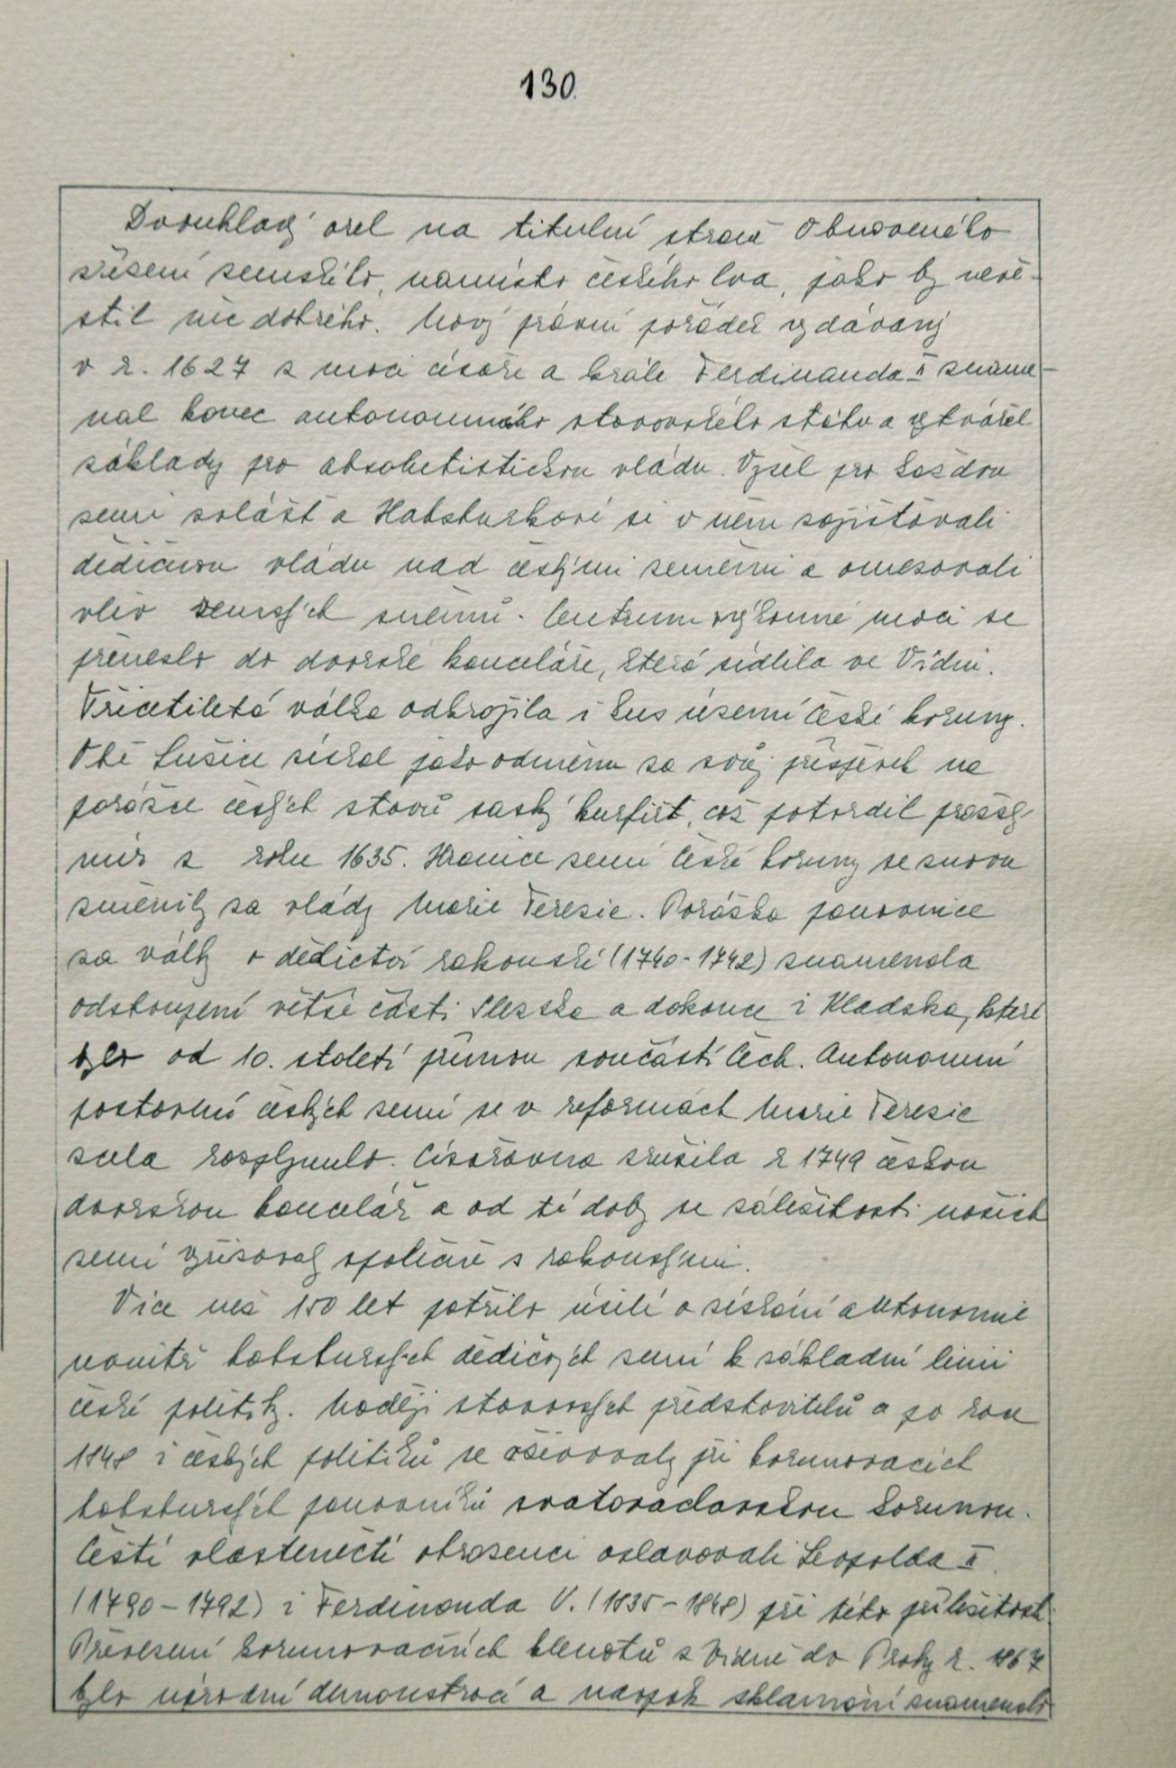 130.
Dvouhlavý orel na titulní straně Obnoveného
zřízení zemského, namísto českého lva, jako by nevě-
stil nic dobrého. Nový právní pořádek vydávaný
v r. 1627 z moci císaře a krále Ferdinanda II zname-
nal konec autonomního stavovského státu a vytvářel
základy pro absolutistickou vládu. Vyšel pro každou
zemi zvlášť a Habsburkové si v něm zajišťovali
dědičnou vládu nad českými zeměmi a omezovali
vliv zemských sněmů. Centrum výkonné moci se
přeneslo do dvorské kanceláře, která sídlila ve Vídni.
Třicetiletá válka odkrojila i kus území České koruny.
Obě Lužice získal jako odměnu za svůj příspěvek na
porážce českých stavů saský kurfiřt, což potvrdil pražský
mír z roku 1635. Hranice zemí České koruny se znovu
změnily za vlády Marie Terezie. Porážka panovnice
za války o dědictví rakouské (1740-1742) znamenala
odstoupení větší části Slezska a dokonce i Kladska, které
bylo od 10. století přímou součástí Čech. Autonomní
postavení českých zemí se v reformách Marie Terezie
zcela rozplynulo. Císařovna zrušila r 1749 českou
dvorskou kancelář a od té doby se záležitosti našich
zemí vyřizovaly společně s rakouskými.
Více než 150 let patřilo úsilí o získání autonomie
uvnitř habsburských dědičných zemí k základní linii
české politiky. Naděje stavovských představitelů a po roce
1848 i českých politiků se oživovaly při korunovacích
habsburských panovníků svatováclavskou korunou.
Čeští vlastenečtí obrozenci oslavovali Leopolda II.
(1790-1792) i Ferdinanda V. (1835-1848) při této příležitosti.
Převezení korunovačních klenotů z Vídně do Prahy r. 1867
bylo národní demonstrací a naopak zklamání znamenalo